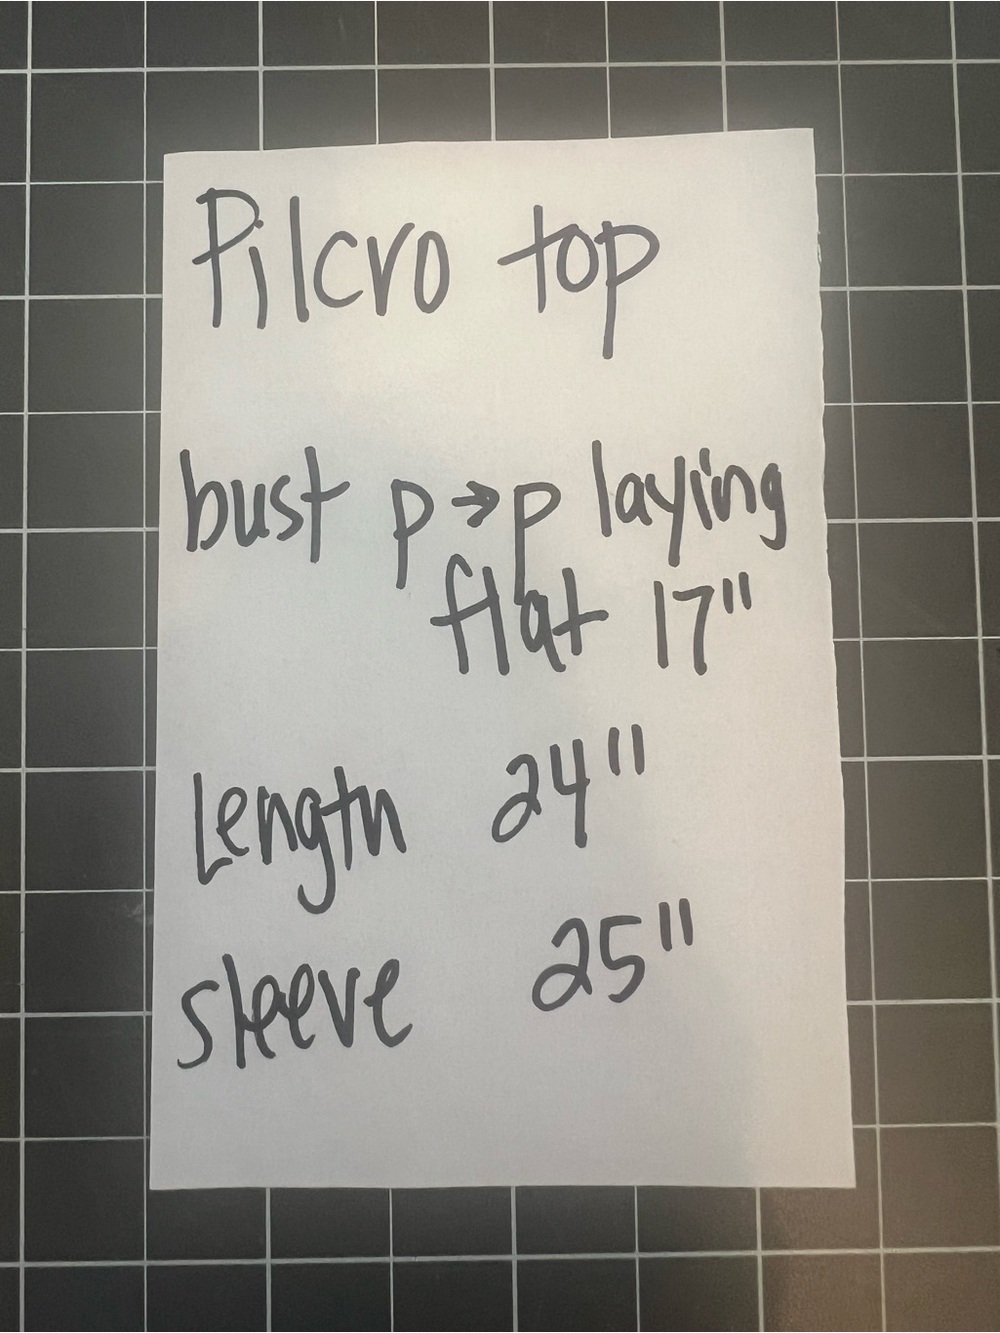 Pilcro top
bust p→p laying
flat 17"
Length 24"
sleeve 25"